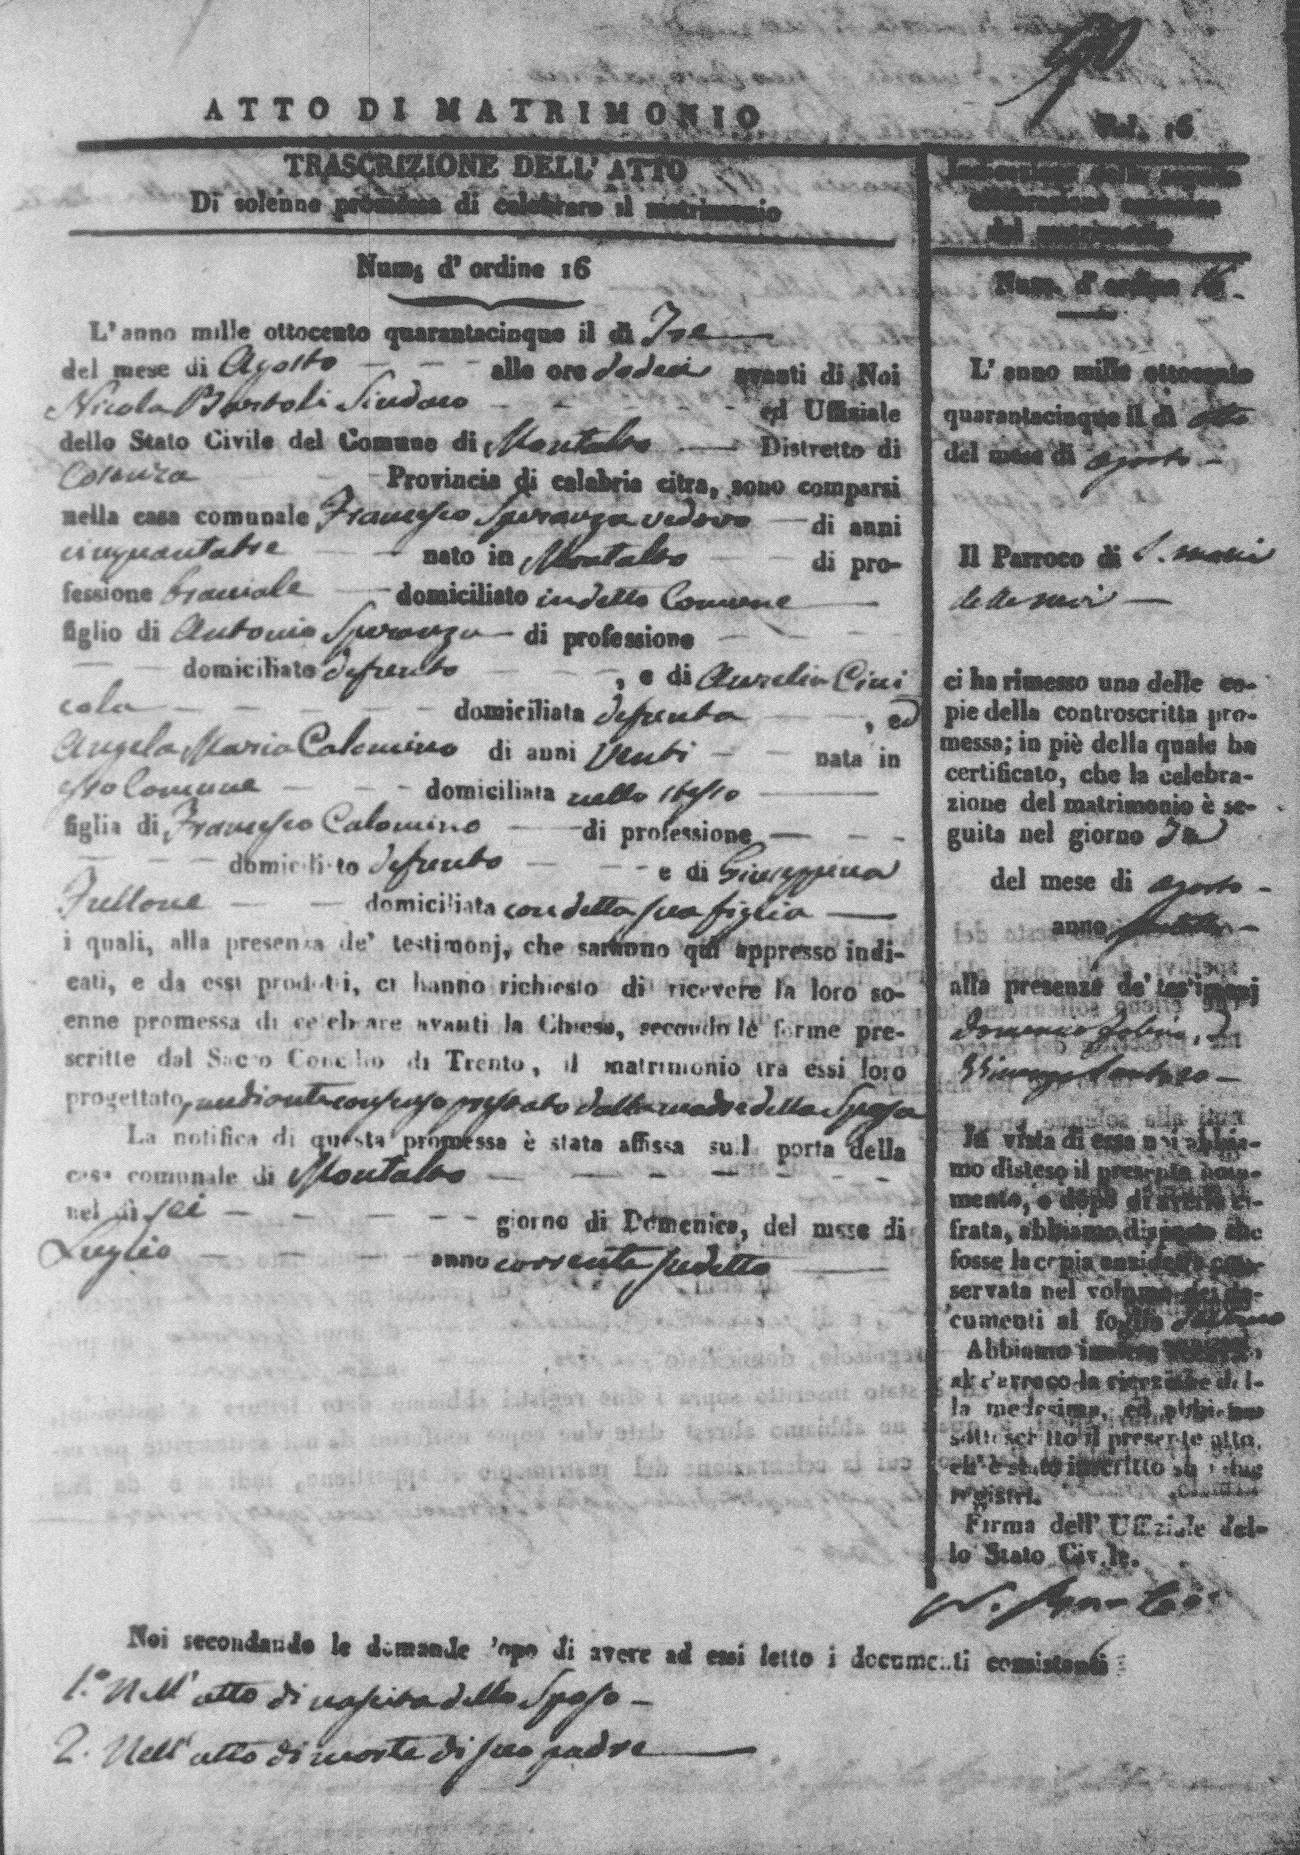 ATTO DI MATRIMONIO
Vol. 16
TRASCRIZIONE DELL' ATTO
Di solenne promessa di celebrare il matrimonio
Num. d' ordine 16
L' anno mille ottocento quarantacinque il dì Tre
del mese di Agosto alle ore dodeci avanti di Noi
Nicola Bartoli Sindaco ed Uffiziale
dello Stato Civile del Comune di Montalto Distretto di
Cosenza Provincia di calabria citra, sono comparsi
nella casa comunale Francesco Speranza vedovo di anni
cinquantatre nato in Montalto di pro-
fessione braciale domiciliato in detto Comune
figlio di Antonio Speranza di professione
domiciliato defunto , e di Aurelia Cini
cola domiciliata defunta , ed
Angela Maria Calomino di anni Venti nata in
esso Comune domiciliata nello stesso
figlia di Francesco Calomino di professione
domiciliato defunto e di Giuseppina
Fullone domiciliata con detta sua figlia
i quali, alla presenza de' testimonj, che saranno qui appresso indi-
cati, e da essi prodotti, ci hanno richiesto di ricevere la loro so-
enne promessa di celebrare avanti la Chiesa, secondo le forme pre-
scritte dal Sacro Concilio di Trento, il matrimonio tra essi loro
progettato, mediante consenso prestato dalla madre della Sposa
La notifica di questa promessa è stata affissa sulla porta della
casa comunale di Montalto
nel dì sei giorno di Domenica, del mese di
Luglio anno corrente sudetto
Noi secondando le domande dopo di avere ad essi letto i documenti consistenti
1.° Nell' atto di nascita dello Sposo
2. Nell' atto di morte di suo padre
del matrimonio
Num. d' ordine 16
L' anno mille ottocento
quarantacinque il dì otto
del mese di agosto
Il Parroco di S. Maria
ci ha rimesso una delle co-
pie della controscritta pro-
messa; in piè della quale ha
certificato, che la celebra-
zione del matrimonio è se-
guita nel giorno Tre
del mese di agosto
anno
alla presenza de' testimonj
Domenico
Giuseppe
In vista di essa noi abbia-
mo disteso il presente noca-
mento, e dopo di averla ci-
frata, abbiamo disposto che
fosse la copia anzidetta con-
servata nel volume dei do-
cumenti al foglio
Abbiamo inoltre
al Parroco la ricezione del-
la medesima, ed abbiamo
sottoscritto il presente atto,
ch' è stato inscritto su i due
registri.
Firma dell' Uffiziale del-
lo Stato Civile.
N. Bartoli